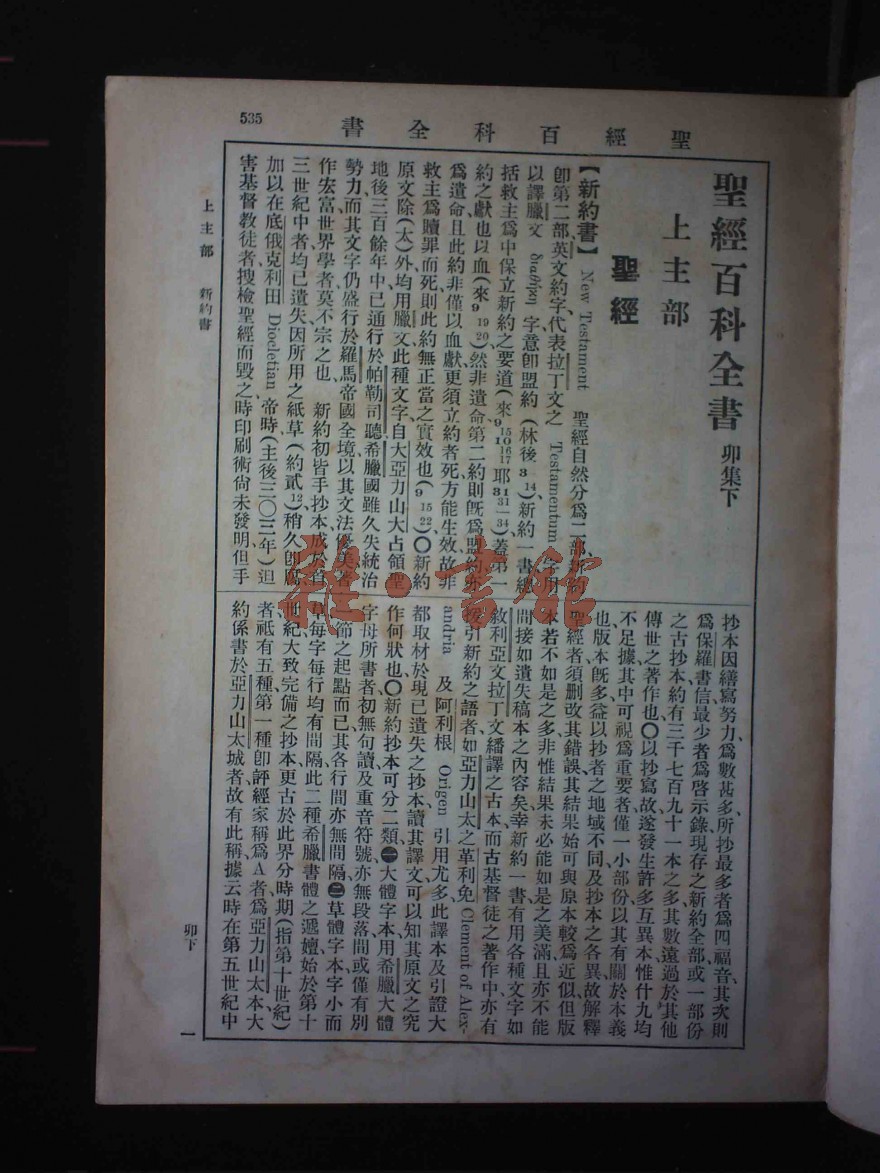 535
書全科百經聖
聖經百科全書 卯集下
上主部
聖經
【新約書】 New Testament 聖經自然分爲二部、新約
卽第二部、英文約字、代表拉丁文之 Testamentum 字、所
以譯臘文 διαθήκη 字、意卽盟約、(林後3 14)、新約一書、總
括救主爲中保立新約之要道、(來9 15 10 16 17 耶31 31—34)、蓋第一
約之獻也以血、(來9 19 20)、然非遺命、第二約則旣爲盟約、亦
爲遺命、且此約非僅以血獻、更須立約者死、方能生效、故非
救主爲贖罪而死、則此約無正當之實效也、(9 15 22)、〇新約
原文、除(太)外、均用臘文、此種文字、自大亞力山大占領聖
地後、三百餘年中、已通行於帕勒司聽、希臘國雖久失統治
勢力、而其文字仍盛行於羅馬帝國全境、以其文法優美、著
作宏富、世界學者、莫不宗之也、 新約初皆手抄本、成於首
三世紀中者、均已遺失、因所用之紙草、(約貳12)稍久卽腐、
加以在底俄克利田 Diocletian 帝時、(主後三〇三年)迫
害基督敎徒者、搜檢聖經而毀之、時印刷術尙未發明、但手
抄本因繕寫努力、爲數甚多、所抄最多者爲四福音、其次則
爲保羅書信、最少者爲啓示錄、現存之新約全部、或一部份
之古抄本、約有三千七百九十一本之多、其數遠過於其他
傳世之著作也、〇以抄寫故、遂發生許多互異本、惟什九均
不足據、其中可視爲重要者、僅一小部份、以其有關於本義
也、版本旣多、益以抄者之地域不同、及抄本之各異、故解釋
聖經者、須删改其錯誤、其結果始可與原本較爲近似、但版
本若不如是之多、非惟結果未必能如是之美滿、且亦不能
間接如遺失稿本之內容矣、幸新約一書、有用各種文字如
敘利亞文拉丁文繙譯之古本、而古基督徒之著作中、亦有
援引新約之語者、如亞力山太之革利免 Clement of Alex-
andria 及阿利根 Origen 引用尤多、此譯本及引證、大
都取材於現已遺失之抄本、讀其譯文、可以知其原文之究
作何狀也、〇新約抄本、可分二類、㊀大體字本、用希臘大體
字母所書者、初無句讀、及重音符號、亦無段落、間或僅有別
一節之起點而已、其各行間、亦無間隔、㊁草體字本、字小而
草、每字每行、均有間隔、此二種希臘書體之遞嬗、始於第十
世紀、大致完備之抄本、更古於此界分時期(指第十世紀)
者、祗有五種、第一種卽評經家稱爲A者、爲亞力山太本、大
約係書於亞力山太城者、故有此稱、據云時在第五世紀中
上主部 新約書
卯下
一
雅·書館